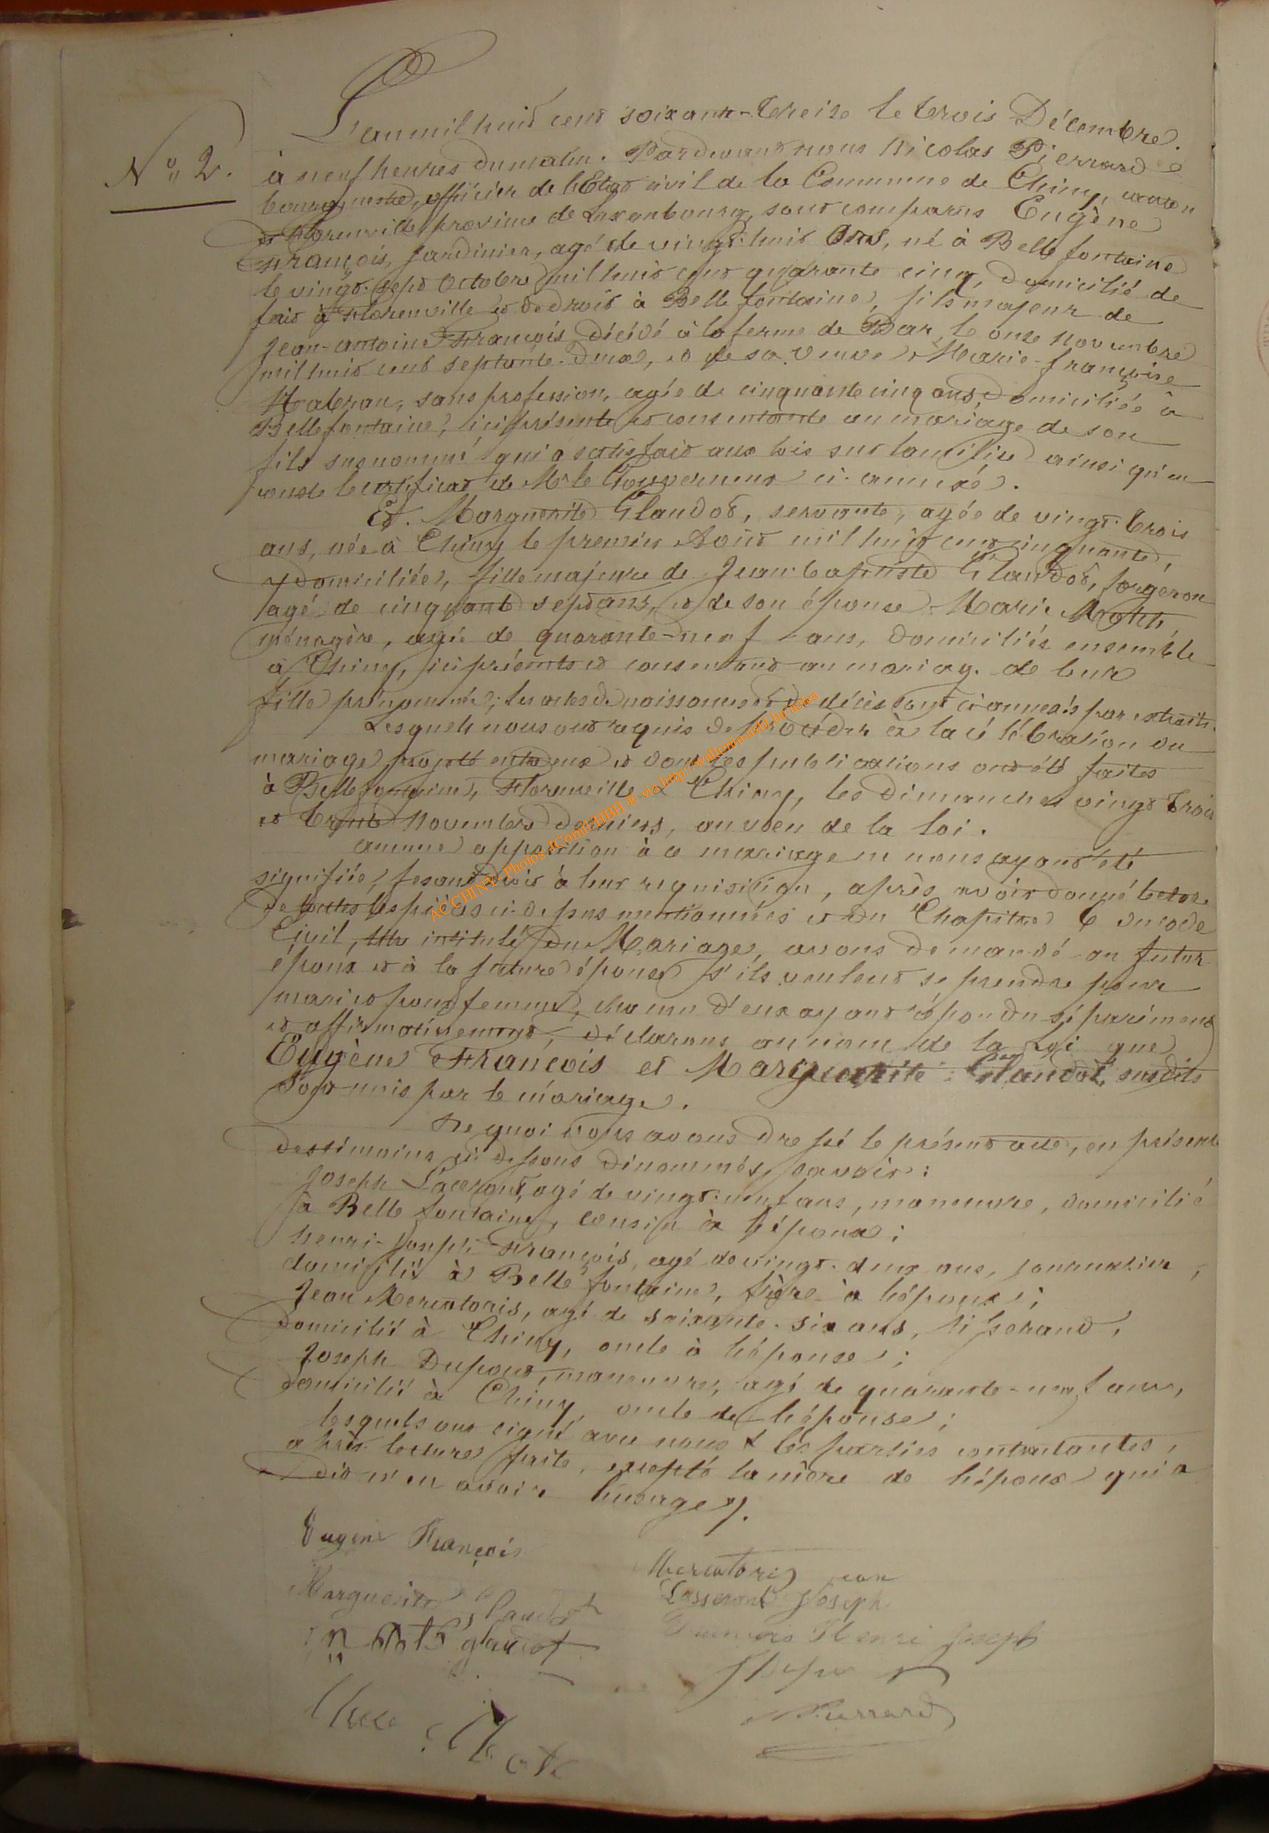 N° 2.
L'an mil huit cent soixante-treize le trois Décembre
à neuf heures du matin. Pardevant nous Nicolas Pierrard
bourgmestre, officier de l'Etat civil de la Commune de Chiny, canton
de Florenville province de Luxembourg, sont comparus Eugène
François, Jardinier, agé de vingt huit ans, né à Bellefontaine
le vingt-sept Octobre mil huit cent quarante cinq, domicilié de
fait à Florenville et de droit à Bellefontaine, fils majeur de
Jean-antoine François décédé à la ferme de le onze novembre
mil huit cent septante-deux, et de sa veuve Marie-françoise
sans profession, agée de cinquante cinq ans, domiciliée à
Bellefontaine, ici présente et consentante au mariage de son
fils susnommé qui a satisfait aux lois sur la milice ainsi qu'en
conste le certificat de Mr le Gouverneur ci-annexé.
Et. Marguerite Glaudot, servante, agée de vingt-trois
ans, née à Chiny le premier Août mil huit cent cinquante,
y domiciliée, fille majeure de Jean-baptiste Glaudot, forgeron
agé de cinquante sept ans, et de son épouse Marie
ménagère, agée de quarante-neuf ans, domiciliés ensemble
à Chiny, ici présents et consentant au mariage de leur
fille prénommée; les actes de naissance et de décès sont ci annexés par extraits.
Lesquels nous ont requis de procéder à la célébration du
mariage projeté entre eux et dont les publications ont été faites
à Bellefontaine, Florenville & Chiny, les dimanches vingt trois
et trente novembre derniers, au voeu de la loi.
aucune opposition à ce mariage ne nous ayant été
signifiée, fesant droit à leur réquisition, après avoir donné lecture
de toutes les pièces ci-dessus mentionnées et du Chapitre 6 du code
Civil, titre intitulé du Mariage, avons demandé au futur
époux et à la future épouse s'ils veulent se prendre pour
mari et pour femme, chacun d'eux ayant répondu séparément
et affirmativement, déclarons au nom de la Loi que
Eugène François et Marguerite Glaudot, susdits
sont unis par le mariage.
De quoi nous avons dressé le présent acte, en présence
des témoins ci-dessous dénommés, savoir:
Joseph agé de vingt-neuf ans, manoeuvre, domicilié
à Bellefontaine, cousin à l'époux;
henri-Joseph François, agé de vingt-deux ans, journalier,
domicilié à Bellefontaine, frère à l'époux;
Jean Mercatoris, agé de soixante-six ans, tisserand,
domicilié à Chiny, oncle à l'épouse;
Joseph Dupont, manoeuvre, agé de quarante-neuf ans,
domicilié à Chiny oncle de l'épouse;
lesquels ont signé avec nous & les parties contractantes,
après lecture faite, excepté la mère de l'époux qui a
dit n'en avoir l'usage.
Eugène François
Marguerite Glaudot
glaudot
Mercatoris Jean
Joseph
François Henri Joseph
Pierrard
AC CHINY Photos